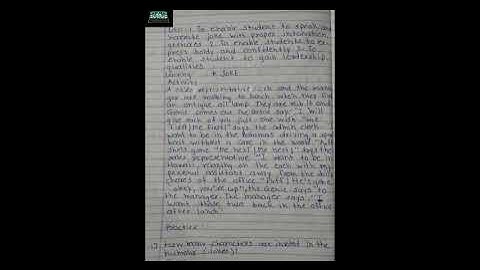 1. To enable student to speak and
narrate joke with proper intonation,
2. To enable students to ex-
press boldly and confidently 3. To
enable student to gain leadership
qualities
A JOKE
Activity
A sales representative and the mana
ger are walking to lunch when they find
an antique oil lamp. They are rub it and
Genie comes out the Genie say "I will
give each of you just one wish" "me
first! Me first!" says the admin clerk
want to be in the Bahamas driving a speed
boat without a care in the world "Puff
She's gone "Me next! Me next!" says the
sales representative "I want to be in
Hawaii, relaxing on the with my
personal assistant away from the daily
chores of the office "Puff! He's gone
"okey, you're up", the Genie says to
the manager. The manager says, "I
want those two back in the office
after lunch"
Practice
How many characters are in the
humour (Jokes)?